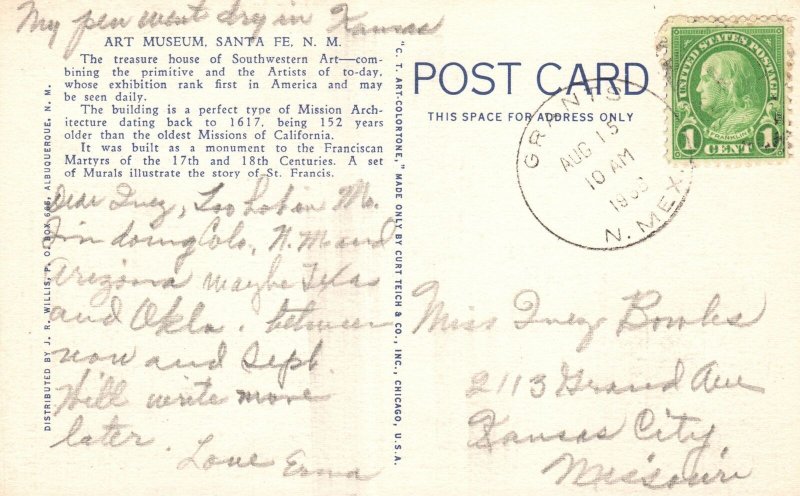 My pen went dry in Kansas
ART MUSEUM, SANTA FE, N. M.
The treasure house of Southwestern Art—com-
bining the primitive and the Artists of to-day,
whose exhibition rank first in America and may
be seen daily.
The building is a perfect type of Mission Arch-
itecture dating back to 1617, being 152 years
older than the oldest Missions of California.
It was built as a monument to the Franciscan
Martyrs of the 17th and 18th Centuries. A set
of Murals illustrate the story of St. Francis.
Dear Inez, Too hot in Mo.
I'm doing Colo, N.M and
Arizona maybe Texas
and Okla. between
now and Sept.
Will write more
later.
Love Erma
DISTRIBUTED BY J. R. WILLIS, P. O. BOX 666, ALBUQUERQUE, N. M.
"C. T. ART-COLORTONE," MADE ONLY BY CURT TEICH & CO., INC., CHICAGO, U.S.A.
POST CARD
THIS SPACE FOR ADDRESS ONLY
GRANTS
AUG 15
10 AM
N. MEX.
UNITED STATES POSTAGE
FRANKLIN
1 CENT 1
Miss Inez Bowles
2113 Grand Ave
Kansas City
Missouri